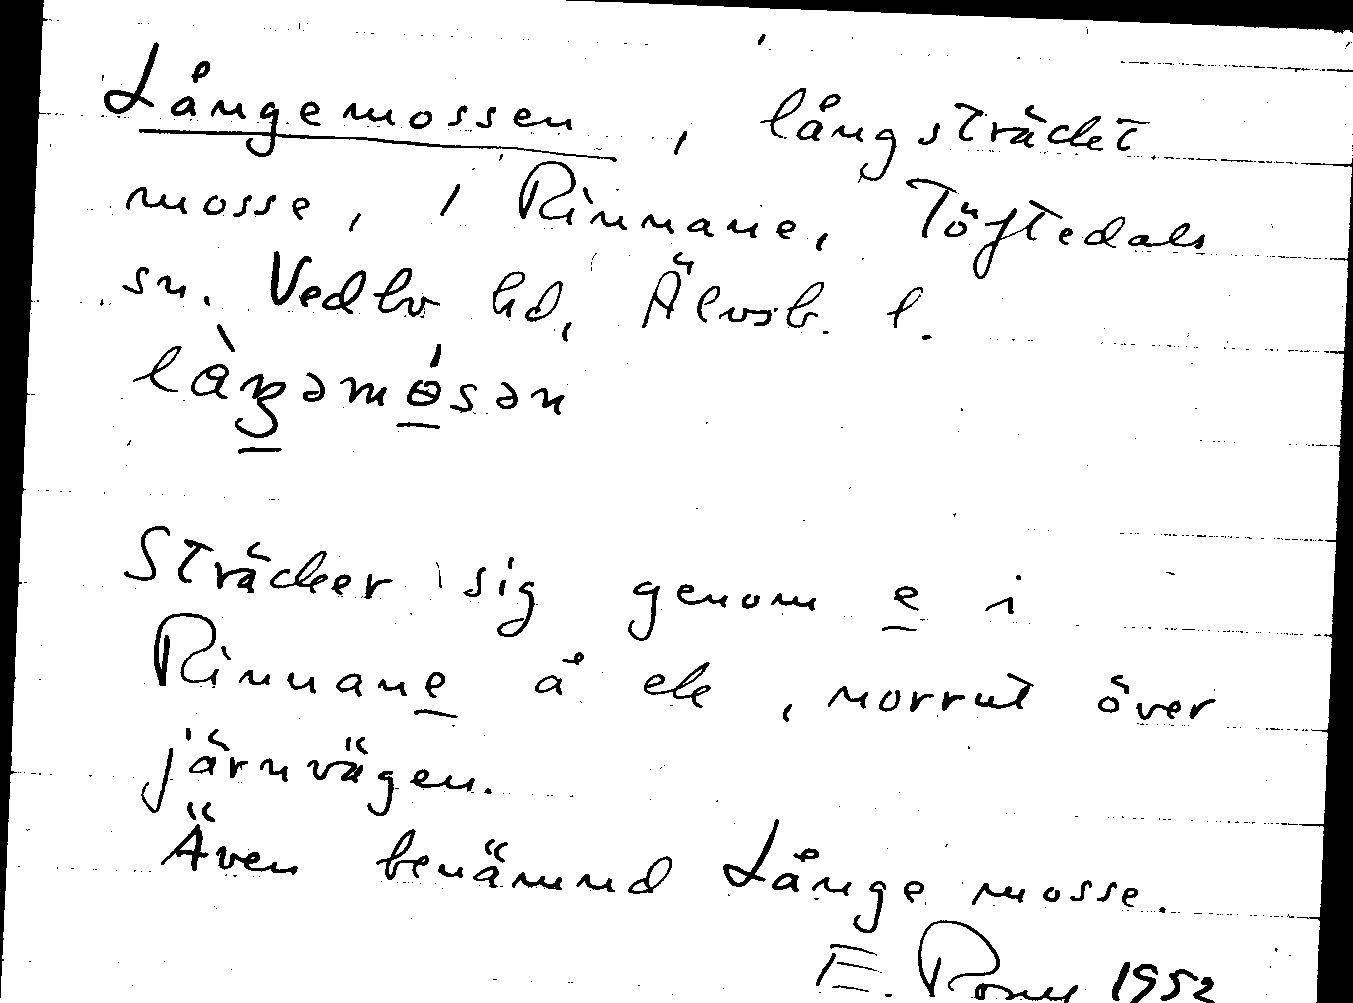 Långemossen, långsträckt
mosse, i Rinnane, Töftedals
sn. Vedbo hd, Älvsb. l.
làŋəmósən
Sträcker sig genom e i
Rinnane å ek, norrut över
järnvägen.
Även benämnd Långe mosse.
E. 1952